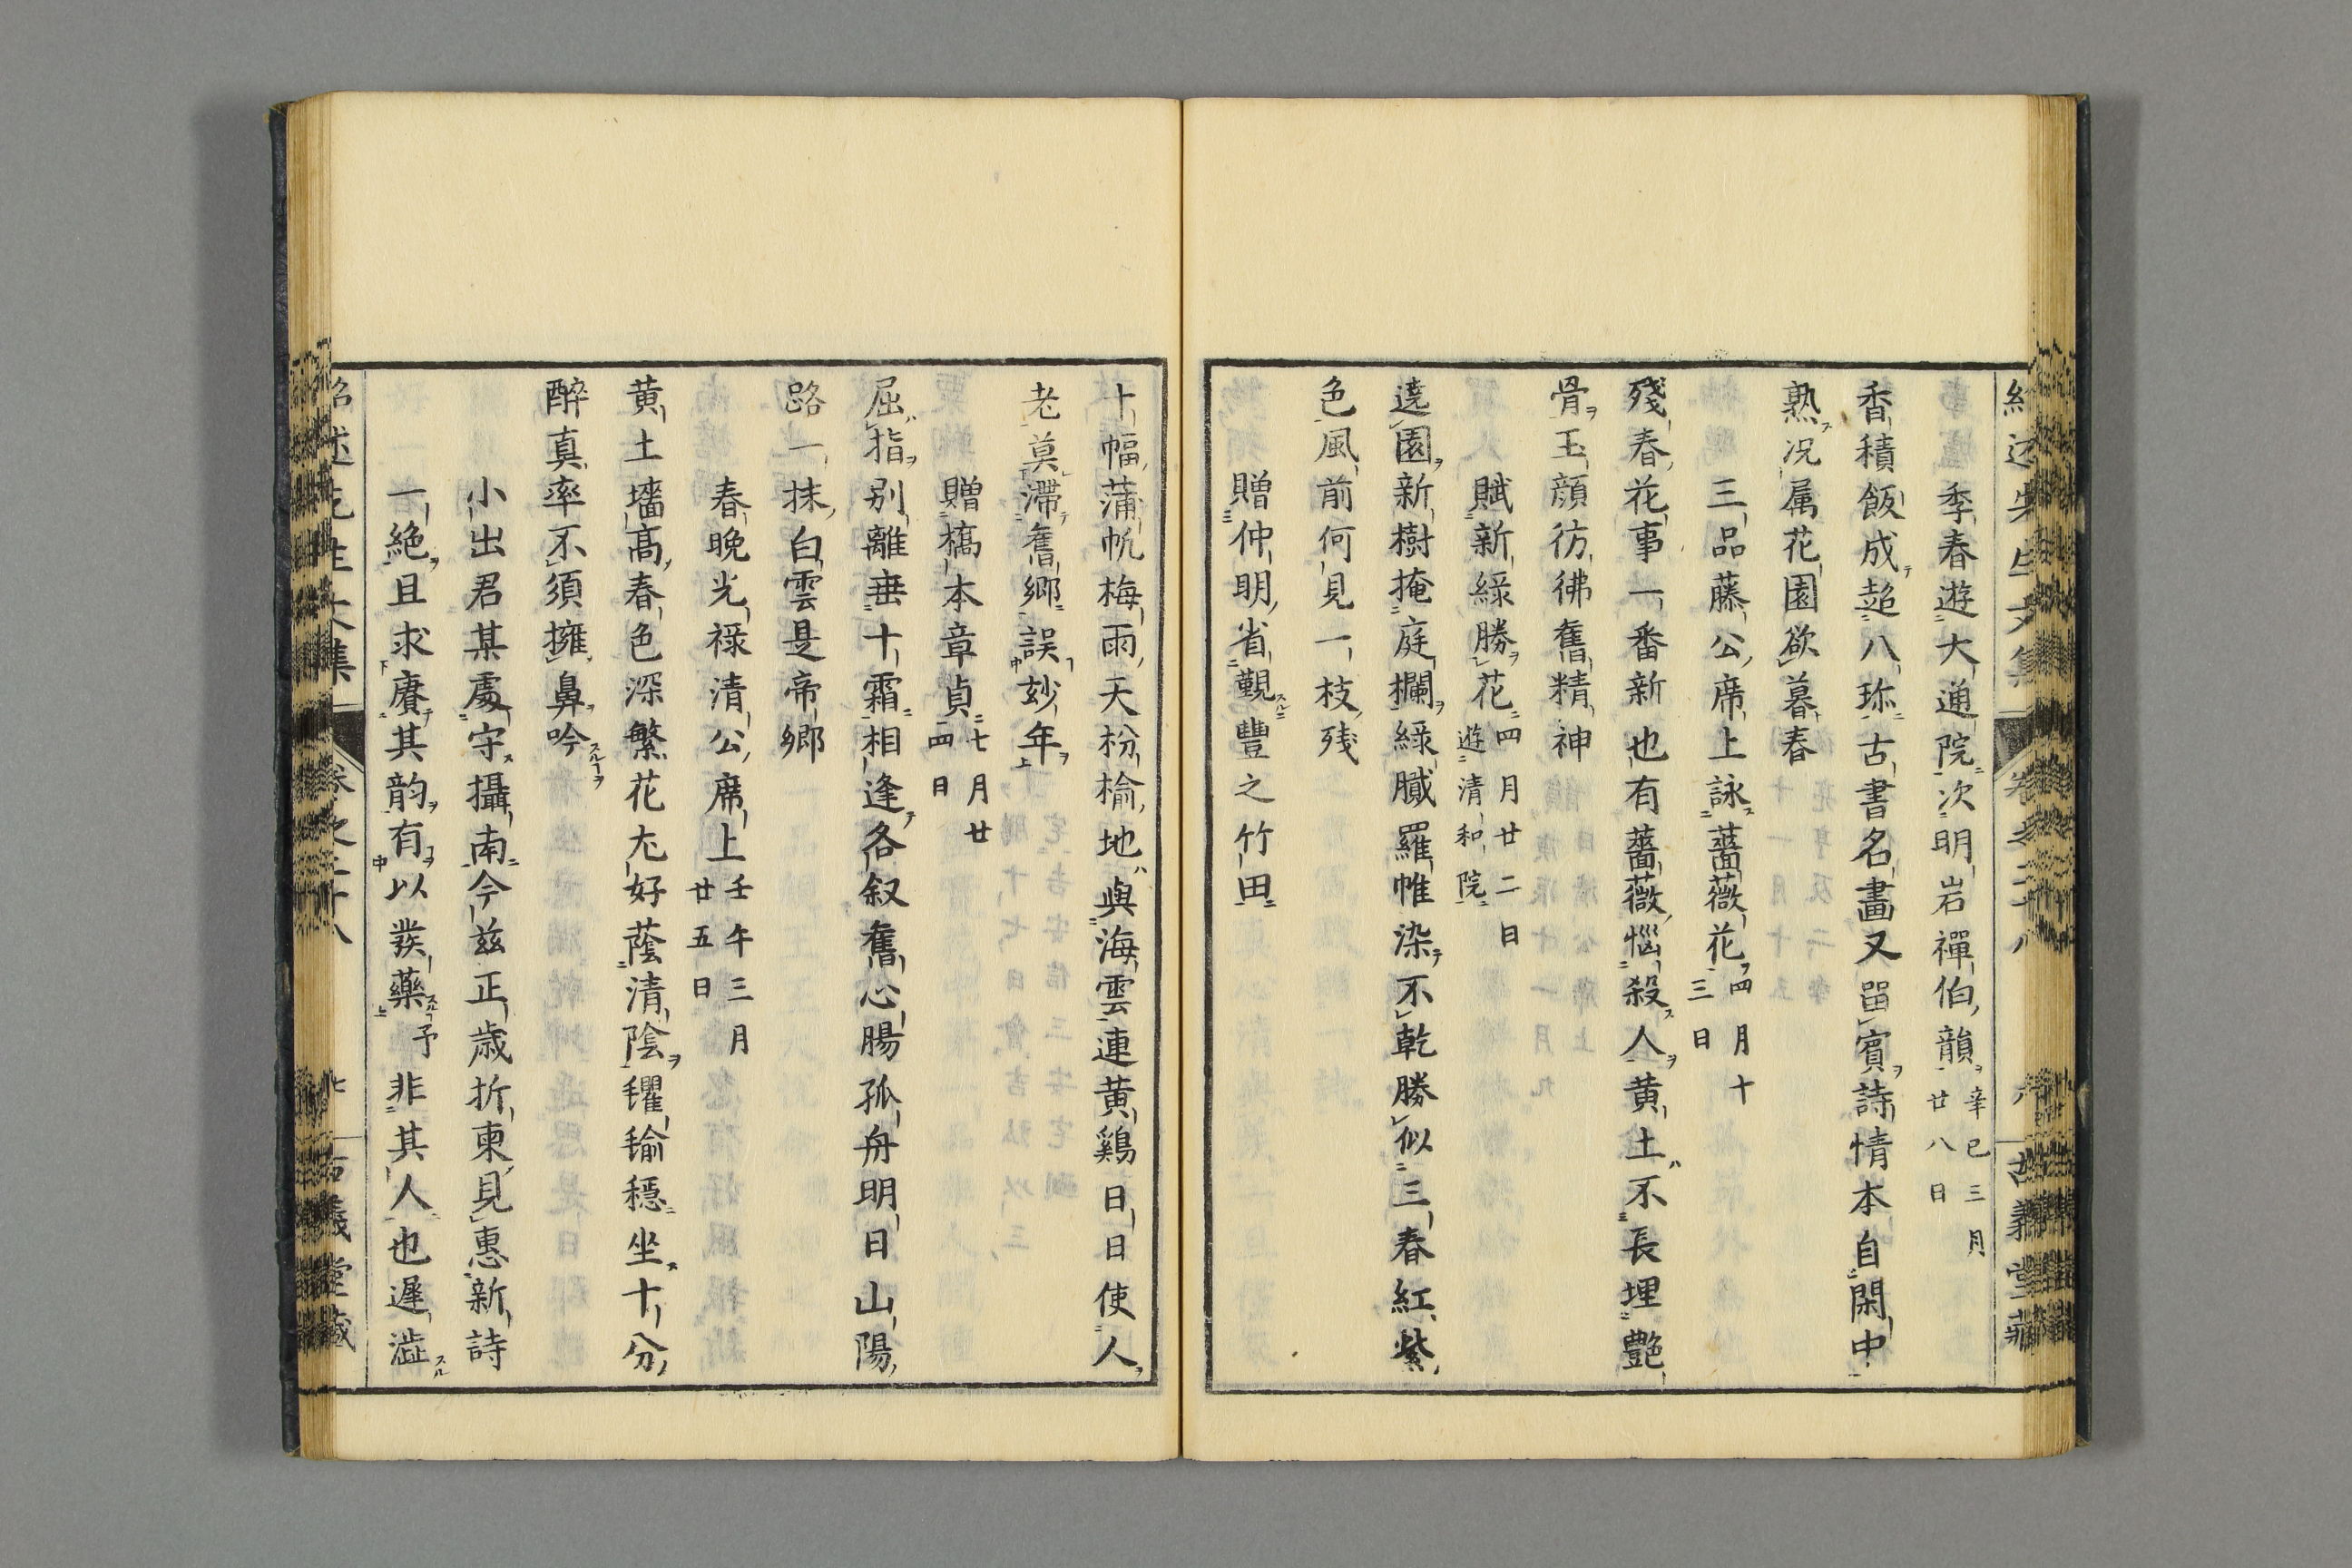 季春遊大通院次明岩禪伯韻辛巳三月廿八日
香積飯成超八珎古書名畫又畱賓詩情本自閑中
熟况属花園欲暮春
三品藤公席上詠薔薇花四月十三日
殘春花事一番新也有薔薇惱殺人黄土不長埋艶
骨玉顔彷彿舊精神
賦新緑勝花四月廿二日遊清和院
遶園新樹掩庭欄緑膩羅帷染不乾勝似三春紅紫
色風前何見一枝残
贈仲明省覲豐之竹田
十幅蒲帆梅雨天枌楡地與海雲連黄鷄日日使人
老莫滞舊郷誤玅年
贈槗本章貞七月廿四日
屈指别離垂十霜相逢各叙舊心腸孤舟明日山陽
路一抹白雲是帝郷
春晩光禄清公席上壬午三月廿五日
黄土墻髙春色深繁花尤好蔭清陰氍毹穏坐十分
醉真率不須擁鼻吟
小出君某處守攝南今兹正歳折柬見惠新詩
一絶且求賡其韵有以發藥予非其人也遲澁
紹述先生文集 卷之二十八 古義堂藏